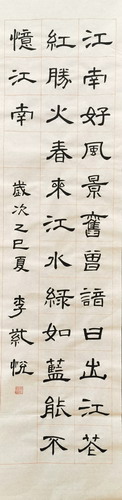 江南好風景舊曾諳日出江花
紅勝火春來江水綠如藍能不
憶江南
歲次乙巳夏 李 悅